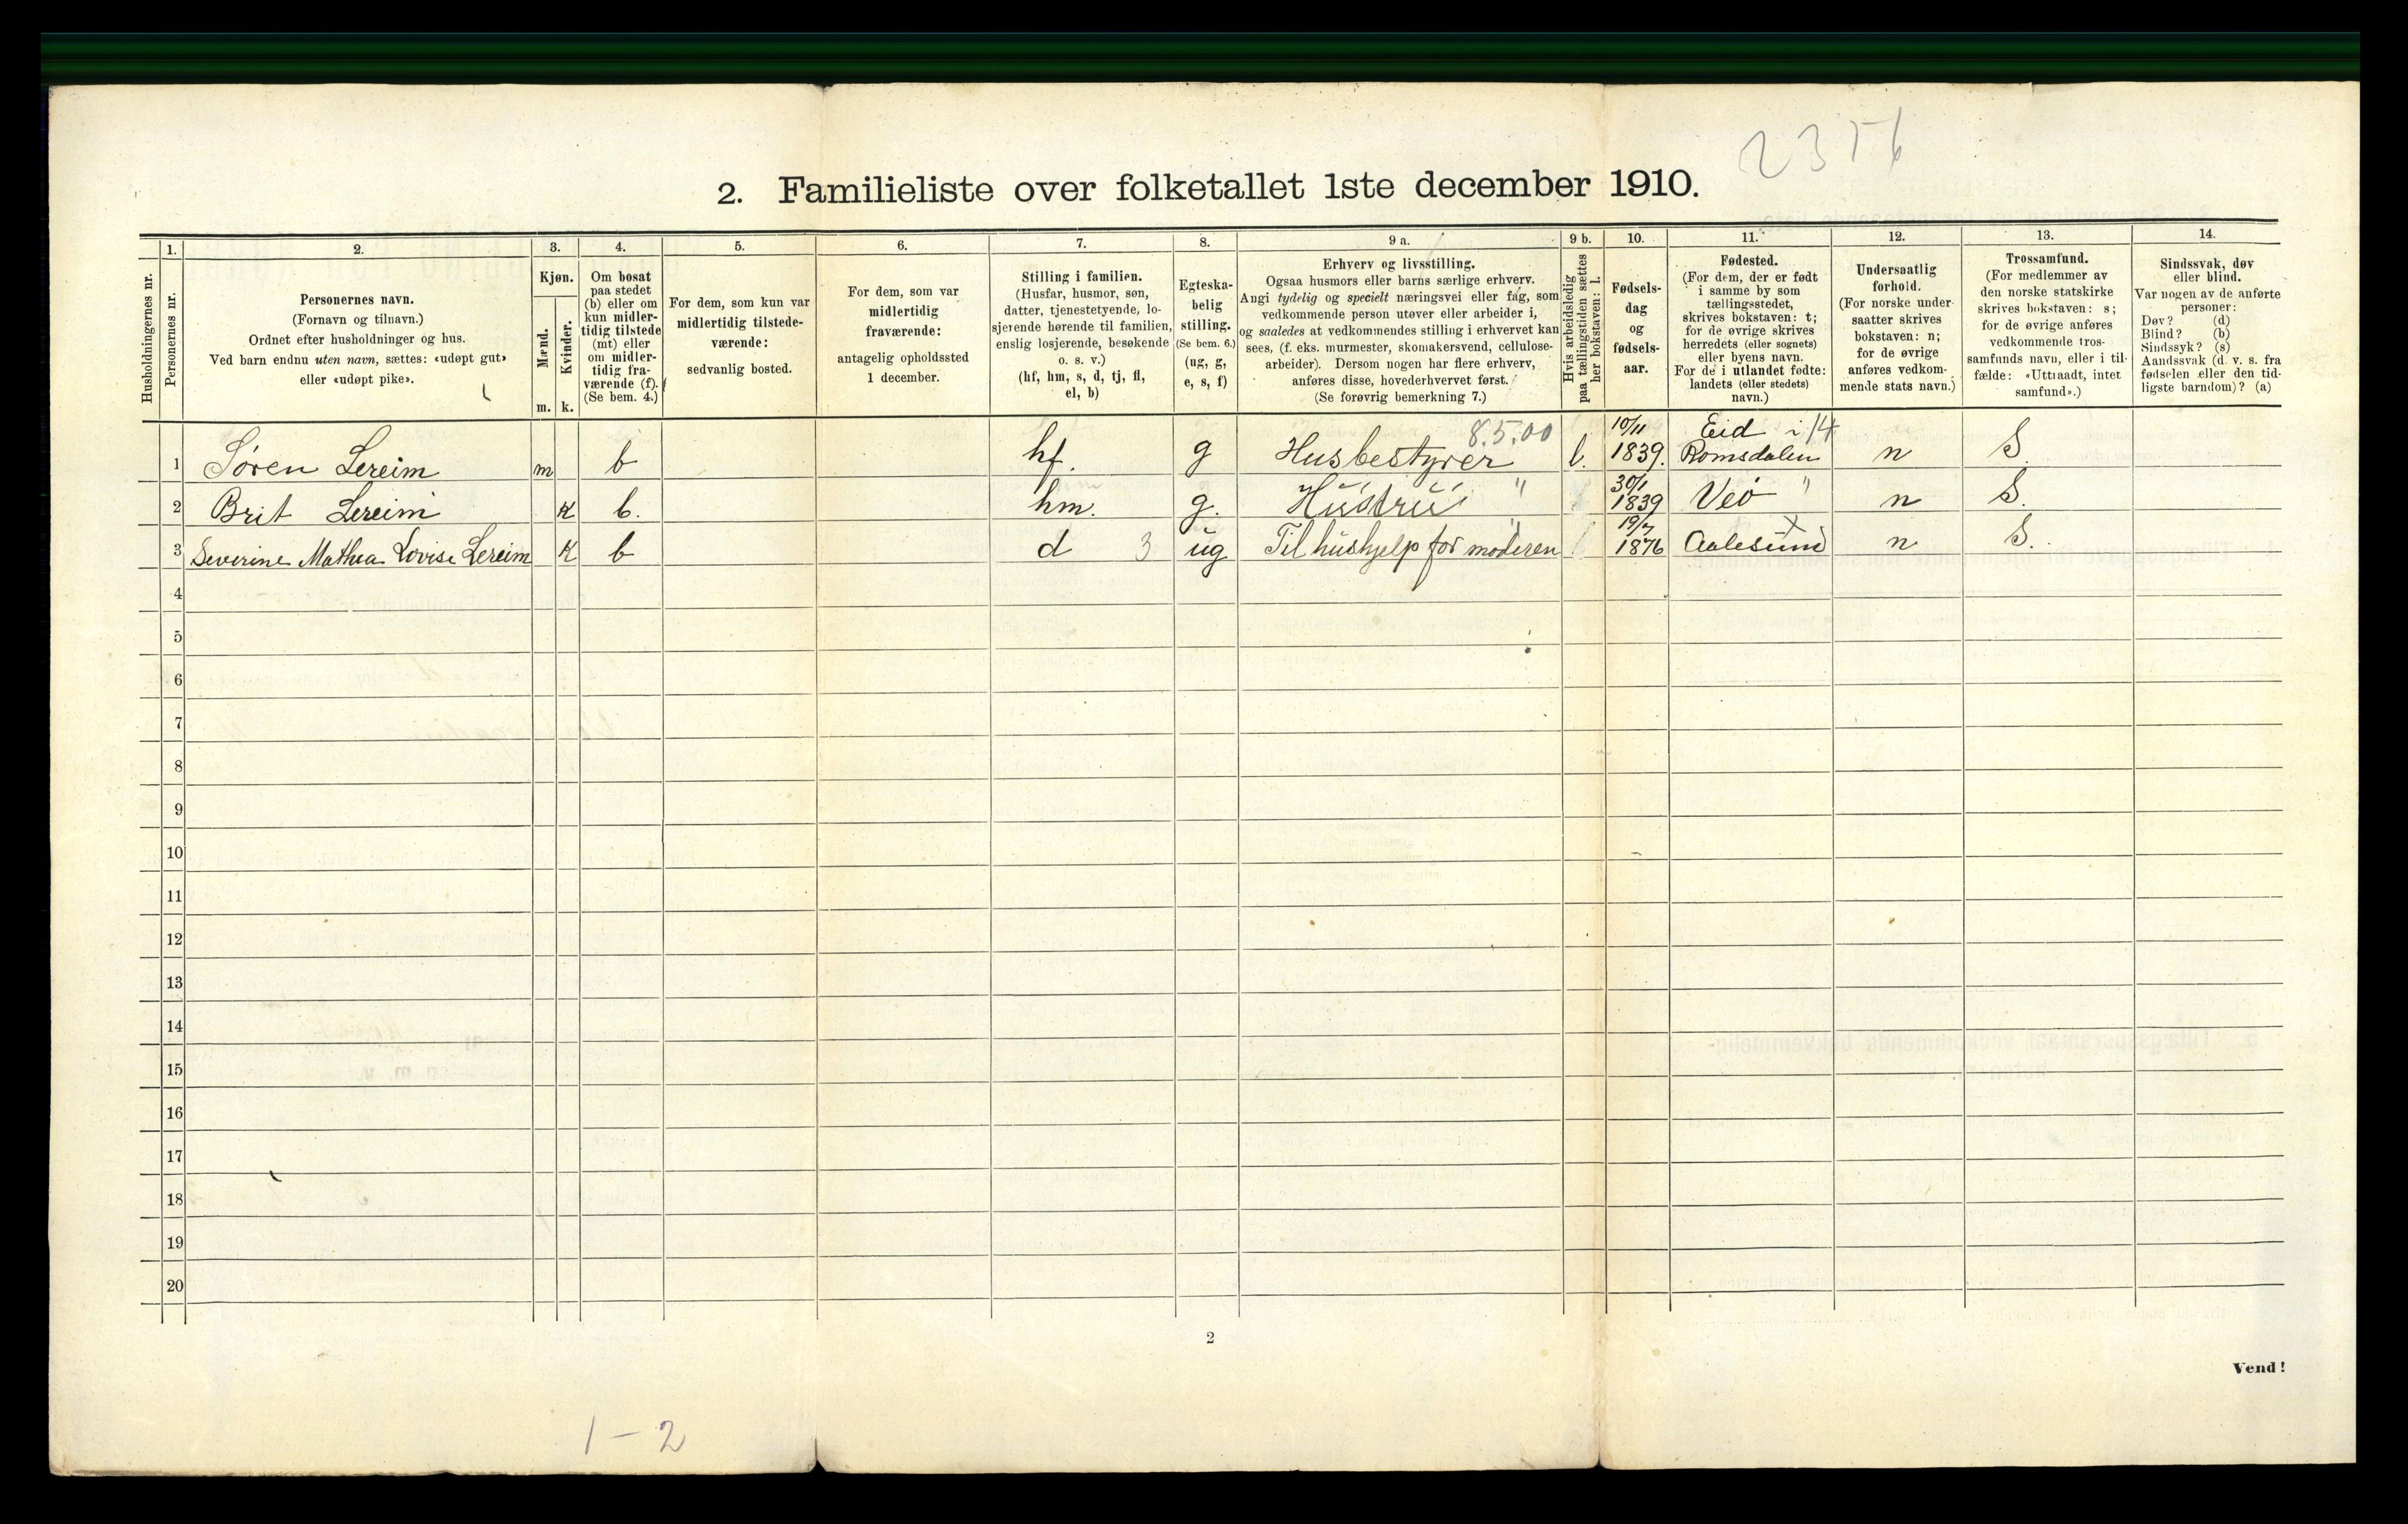 2356
2. Familieliste over folketallet 1ste december 1910.
Husholdningernes nr.
1. Personernes nr.
2. Personernes navn. (Fornavn og tilnavn.) Ordnet efter husholdninger og hus. Ved barn endnu uten navn, sættes: «udøpt gut» eller «udøpt pike».
3. Kjøn. Mænd. m. Kvinder. k.
4. Om bosat paa stedet (b) eller om kun midlertidig tilstede (mt) eller om midlertidig fraværende (f). (Se bem. 4.)
5. For dem, som kun var midlertidig tilstedeværende: sedvanlig bosted.
6. For dem, som var midlertidig fraværende: antagelig opholdssted 1 december.
7. Stilling i familien. (Husfar, husmor, søn, datter, tjenestetyende, losjerende hørende til familien, enslig losjerende, besøkende o. s. v.) (hf, hm, s, d, tj, fl, el, b)
8. Egteskabelig stilling. (Se bem. 6.) (ug, g, e, s, f)
9 a. Erhverv og livsstilling. Ogsaa husmors eller barns særlige erhverv. Angi tydelig og specielt næringsvei eller fag, som vedkommende person utøver eller arbeider i, og saaledes at vedkommendes stilling i erhvervet kan sees, (f. eks. murmester, skomakersvend, cellulosearbeider). Dersom nogen har flere erhverv, anføres disse, hovederhvervet først. (Se forøvrig bemerkning 7.)
9 b. Hvis arbeidsledig paa tællingstiden sættes her bokstaven: l.
10. Fødselsdag og fødselsaar.
11. Fødested. (For dem, der er født i samme by som tællingsstedet, skrives bokstaven: t; for de øvrige skrives herredets (eller sognets) eller byens navn. For de i utlandet fødte: landets (eller stedets) navn.)
12. Undersaatlig forhold. (For norske undersaatter skrives bokstaven: n; for de øvrige anføres vedkommende stats navn.)
13. Trossamfund. (For medlemmer av den norske statskirke skrives bokstaven: s; for de øvrige anføres vedkommende trossamfunds navn, eller i tilfælde: «Uttraadt, intet samfund».)
14. Sindssvak, døv eller blind. Var nogen av de anførte personer: Døv? (d) Blind? (b) Sindssyk? (s) Aandssvak (d. v. s. fra fødselen eller den tidligste barndom)? (a)
1 Søren Lereim m b hf. g Husbestyrer 8.5.00 l. 10/11 1839. Eid i Romsdalen 14 n S.
2 Brit Lereim K b. hm. g. Hustru " 30/1 1839 Veø " n S.
3 Severine Mathea Lovise Lereim K b d 3 ug Til hushjelp for moderen 19/7 1876 Aalesund x n S.
4
5
6
7
8
9
10
11
12
13
14
15
16
17
18
19
20
2
Vend!
1-2